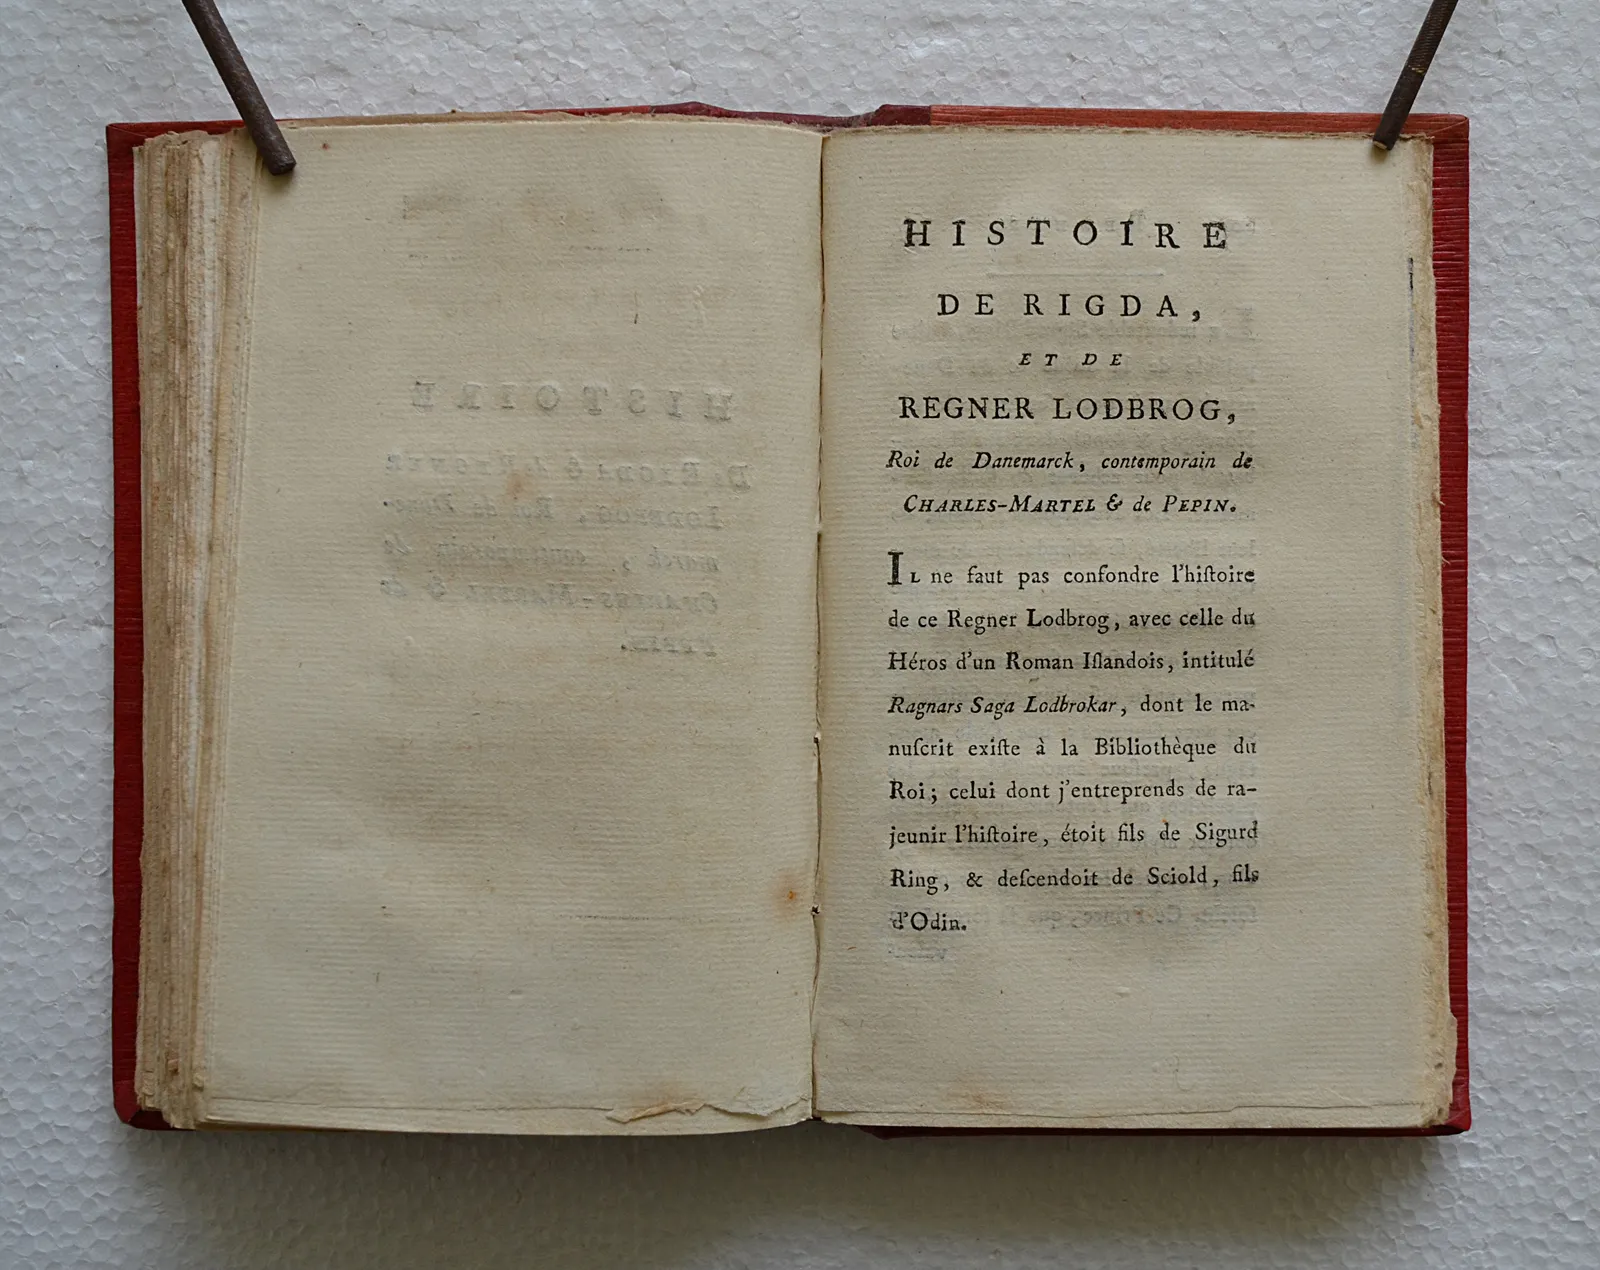 HISTOIRE
DE RIGDA,
ET DE
REGNER LODBROG,
Roi de Danemarck, contemporain de
CHARLES-MARTEL & de PEPIN.
IL ne faut pas confondre l'hiſtoire
de ce Regner Lodbrog, avec celle du
Héros d'un Roman Iſlandois, intitulé
Ragnars Saga Lodbrokar, dont le ma-
nuſcrit exiſte à la Bibliothèque du
Roi; celui dont j'entreprends de ra-
jeunir l'hiſtoire, étoit fils de Sigurd
Ring, & deſcendoit de Sciold, fils
d'Odin.